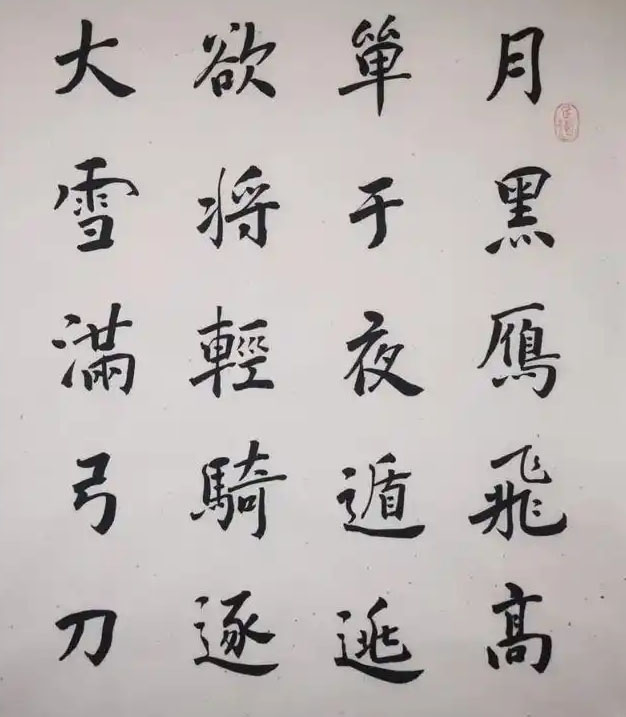 月黑鴈飛高
單于夜遁逃
欲將輕騎逐
大雪滿弓刀